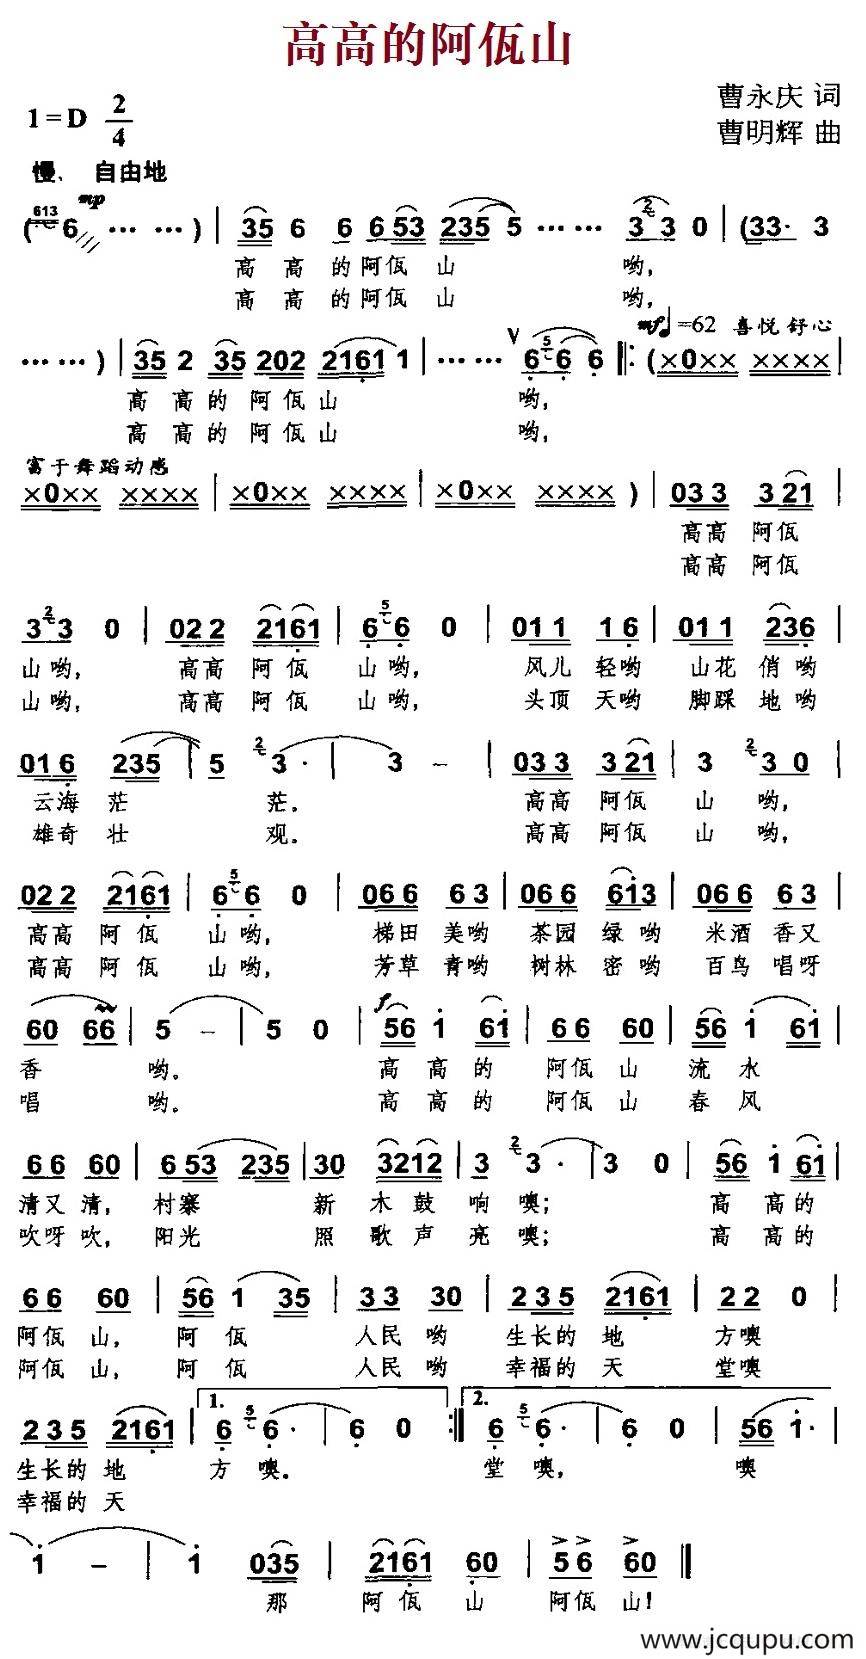 高高的阿佤山
曹永庆 词
1=D 2/4
曹明辉 曲
慢、自由地
mp
(613 6 ··· ···) | 35 6 6 6 53 235 5 ··· ··· 2 3 3 0 | (33· 3
高 高 的 阿 佤 山 哟,
高 高 的 阿 佤 山 哟,
mf ♩=62 喜悦 舒心
··· ···) | 35 2 35 202 2161 1 | ··· ··· V 6 5 6 6 ‖: (×0×× ×××× |
高 高 的 阿 佤 山 哟,
高 高 的 阿 佤 山 哟,
富于舞蹈动感
×0×× ×××× | ×0×× ×××× | ×0×× ×××× ) | 033 321 |
高高 阿佤
高高 阿佤
3 2 3 0 | 022 2161 | 6 5 6 0 | 011 16 | 011 236 |
山哟, 高高 阿佤 山哟, 风儿 轻哟 山花 俏哟
山哟, 高高 阿佤 山哟, 头顶 天哟 脚踩 地哟
016 235 | 5 2 3· | 3 – | 033 321 | 3 2 3 0 |
云海 茫 茫。 高高 阿佤 山 哟,
雄奇 壮 观。 高高 阿佤 山 哟,
022 2161 | 6 5 6 0 | 066 63 | 066 613 | 066 63 |
高高 阿佤 山哟, 梯田 美哟 茶园 绿哟 米酒 香又
高高 阿佤 山哟, 芳草 青哟 树林 密哟 百鸟 唱呀
f
60 66 | 5 – | 5 0 | 56 1 61 | 66 60 | 56 1 61 |
香 哟。 高 高 的 阿佤 山 流 水
唱 哟。 高 高 的 阿佤 山 春 风
66 60 | 6 53 235 | 30 3212 | 3 2 3· | 3 0 | 56 1 61 |
清又清, 村寨 新 木 鼓 响 噢; 高 高 的
吹呀吹, 阳光 照 歌 声 亮 噢; 高 高 的
66 60 | 56 1 35 | 33 30 | 235 2161 | 22 0 |
阿佤 山, 阿佤 人民 哟 生长的 地 方噢
阿佤 山, 阿佤 人民 哟 幸福的 天 堂噢
235 2161 | 1. 6 5 6· | 6 0 :‖ 2. 6 5 6· | 6 0 | 56 1· |
生长的 地 方 噢。 堂 噢, 噢
幸福的 天
1 – | 1 035 | 2161 60 | 5 6 60 ‖
那 阿 佤 山 阿佤 山!
www.jcqupu.com